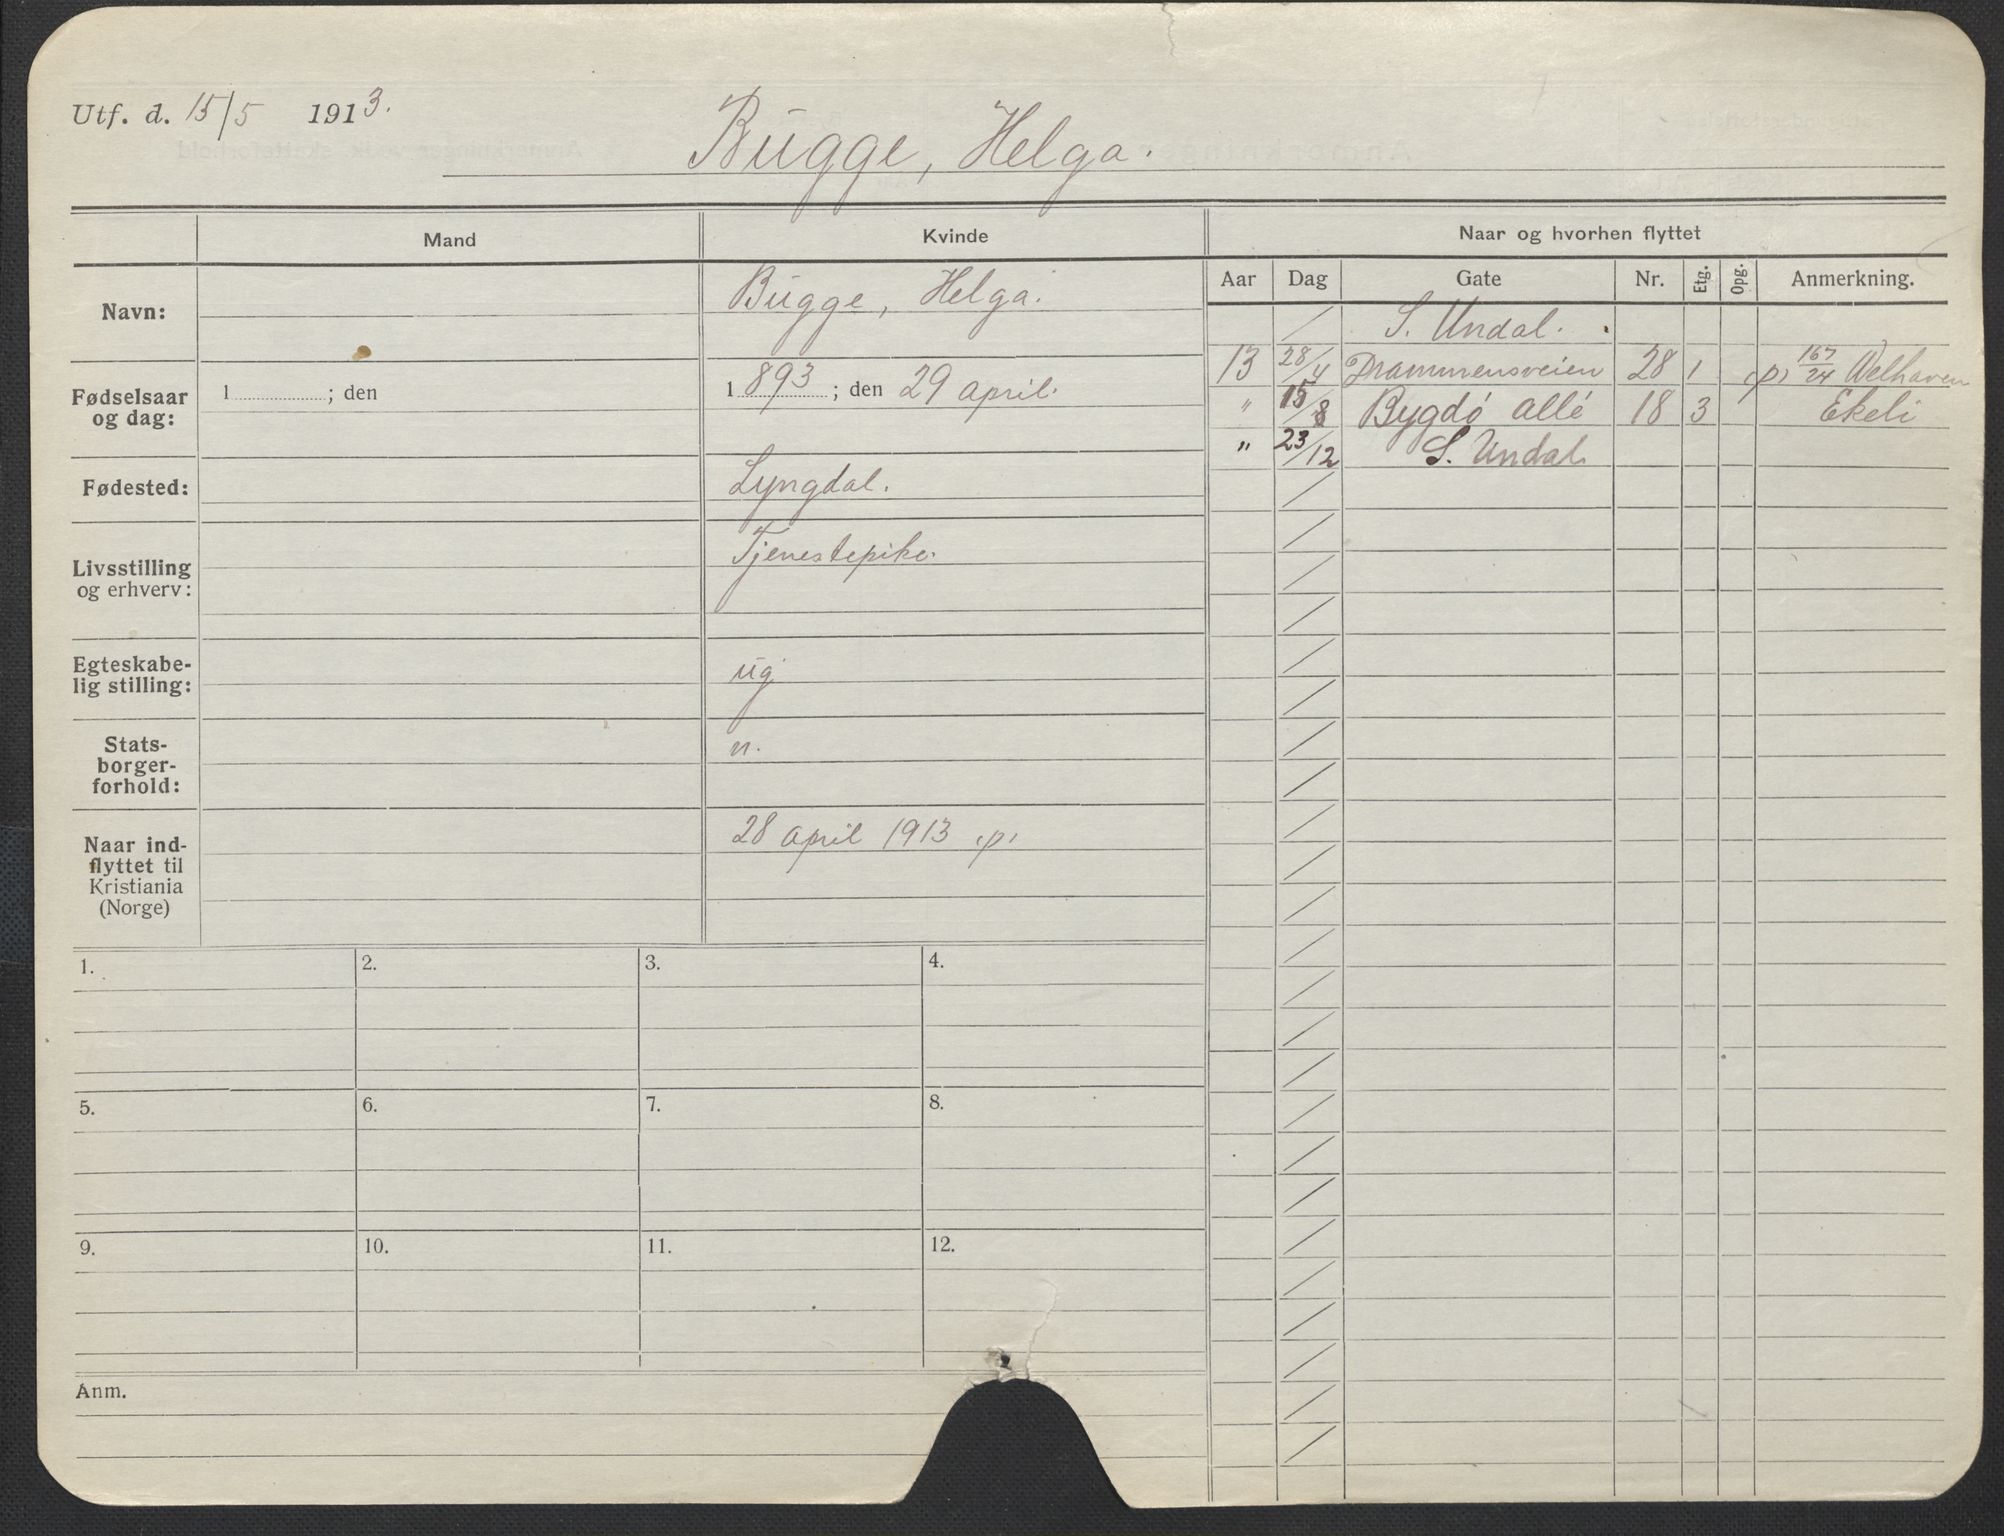 Utf. d. 15/5 1913.
Bugge, Helga.
Mand
Kvinde
Naar og hvorhen flyttet
Aar Dag Gate Nr. Etg. Opg. Anmerkning.
Navn:
Bugge, Helga.
Fødselsaar og dag:
1 ; den
1893 ; den 29 april.
Fødested:
Lyngdal.
Livsstilling
og erhverv:
Tjenestepike.
Egteskabe-
lig stilling:
ug
Stats-
borger-
forhold:
n.
Naar ind-
flyttet til
Kristiania
(Norge)
28 april 1913 (p)
/ S. Undal.
13 28/4 Drammensveien 28 1 (p) 167/24 Welhaven
" 15/8 Bygdö allé 18 3 Ekeli
" 23/12 S. Undal
1. 2. 3. 4.
5. 6. 7. 8.
9. 10. 11. 12.
Anm.